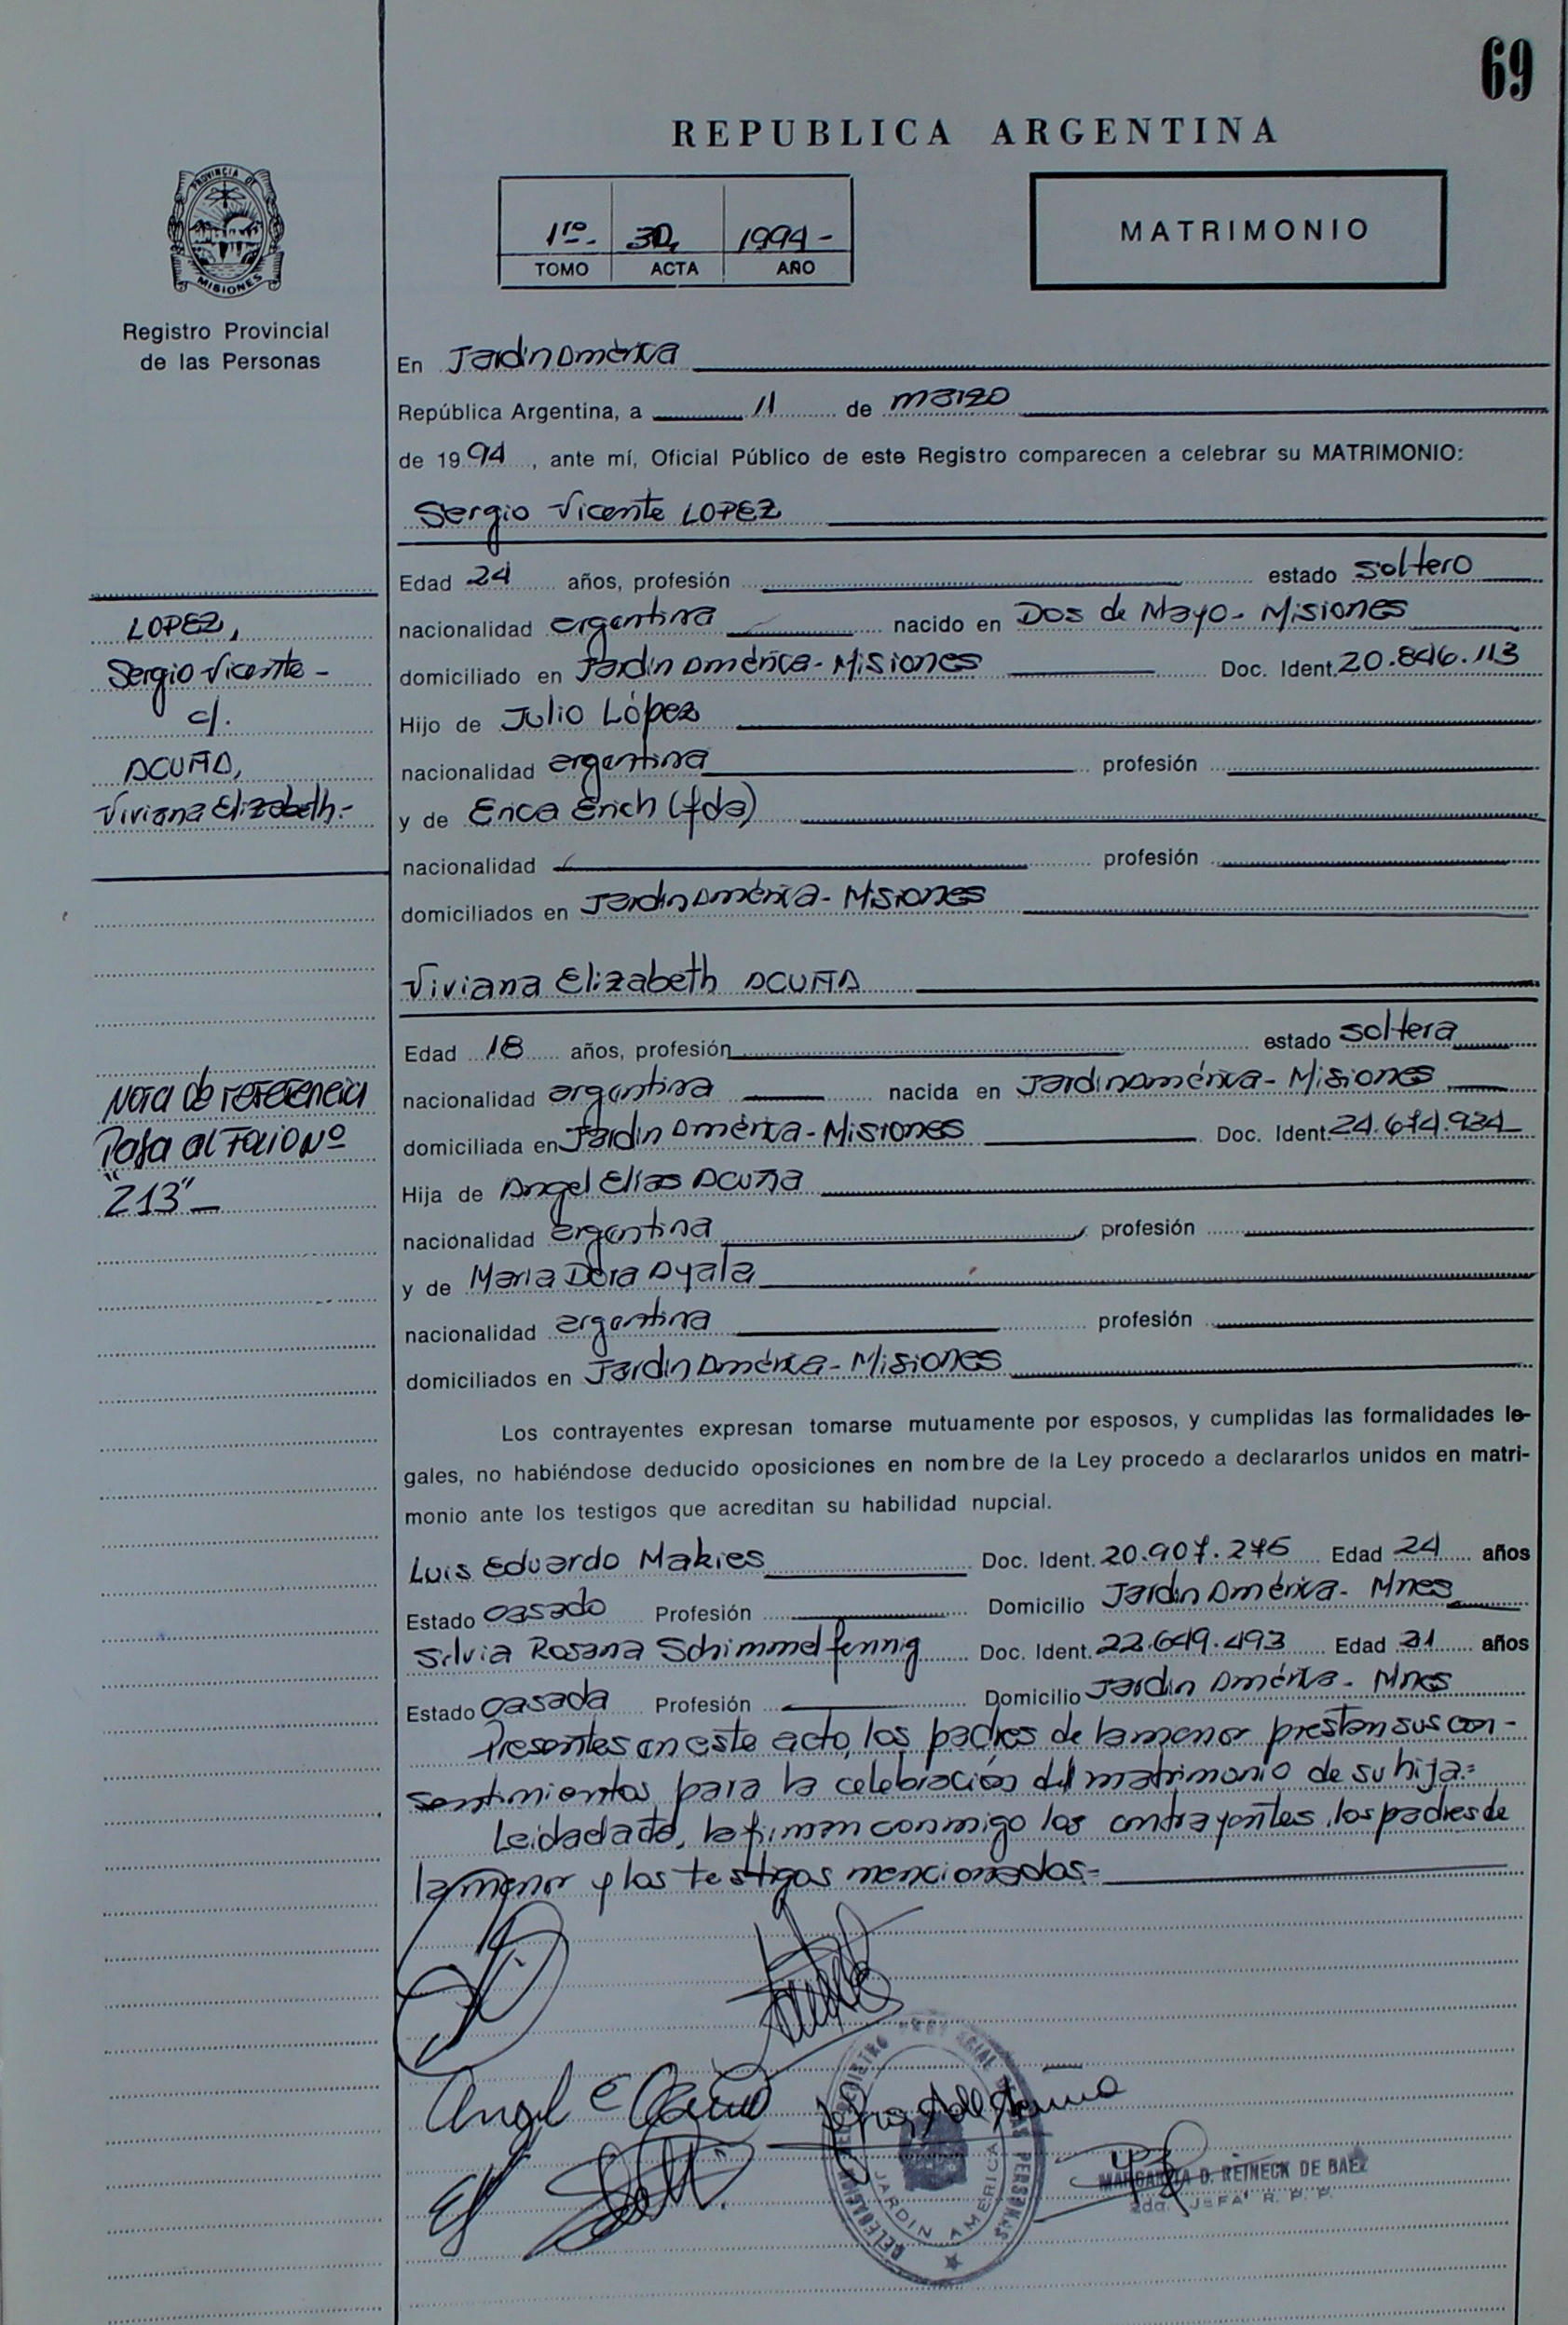 69
REPUBLICA ARGENTINA
PROVINCIA DE
MISIONES
1ro.- 30, 1994-
TOMO ACTA AÑO
MATRIMONIO
Registro Provincial
de las Personas
En Jardín América
República Argentina, a 11 de marzo
de 1994, ante mí, Oficial Público de este Registro comparecen a celebrar su MATRIMONIO:
Sergio Vicente LOPEZ
Edad 24 años, profesión estado soltero
nacionalidad argentina nacido en Dos de Mayo- Misiones
domiciliado en Jardín América- Misiones Doc. Ident. 20.846.113
Hijo de Julio López
nacionalidad argentina profesión
y de Erica Erich (fda)
nacionalidad profesión
domiciliados en Jardín América- Misiones
LOPEZ,
Sergio Vicente-
c/.
ACUÑA,
Viviana Elizabeth.-
Viviana Elizabeth ACUÑA
Edad 18 años, profesión estado soltera
nacionalidad argentina nacida en Jardín América- Misiones
domiciliada en Jardín América- Misiones Doc. Ident. 24.674.934
Hija de Angel Elías Acuña
nacionalidad argentina profesión
y de Maria Dora Ayala
nacionalidad argentina profesión
domiciliados en Jardín América- Misiones
Nota de referencia
Pasa al Folio Nº
"213"-
Los contrayentes expresan tomarse mutuamente por esposos, y cumplidas las formalidades le-
gales, no habiéndose deducido oposiciones en nombre de la Ley procedo a declararlos unidos en matri-
monio ante los testigos que acreditan su habilidad nupcial.
Luis Eduardo Makies Doc. Ident. 20.907.276 Edad 24 años
Estado casado Profesión Domicilio Jardín América- Mnes
Silvia Rosana Schimmelfennig Doc. Ident. 22.649.493 Edad 21 años
Estado casada Profesión Domicilio Jardín América- Mnes
Presentes en este acto, los padres de la menor prestan sus con-
sentimientos para la celebración del matrimonio de su hija.=
Leida el acta, la firman conmigo los contrayentes, los padres de
la menor y los testigos mencionados.=
Angel E Acuña
DELEGACION DEL REGISTRO PROVINCIAL DE LAS PERSONAS
JARDIN AMERICA
MARGARITA D. REINECK DE BAEZ
2da. JEFA R. P. P.